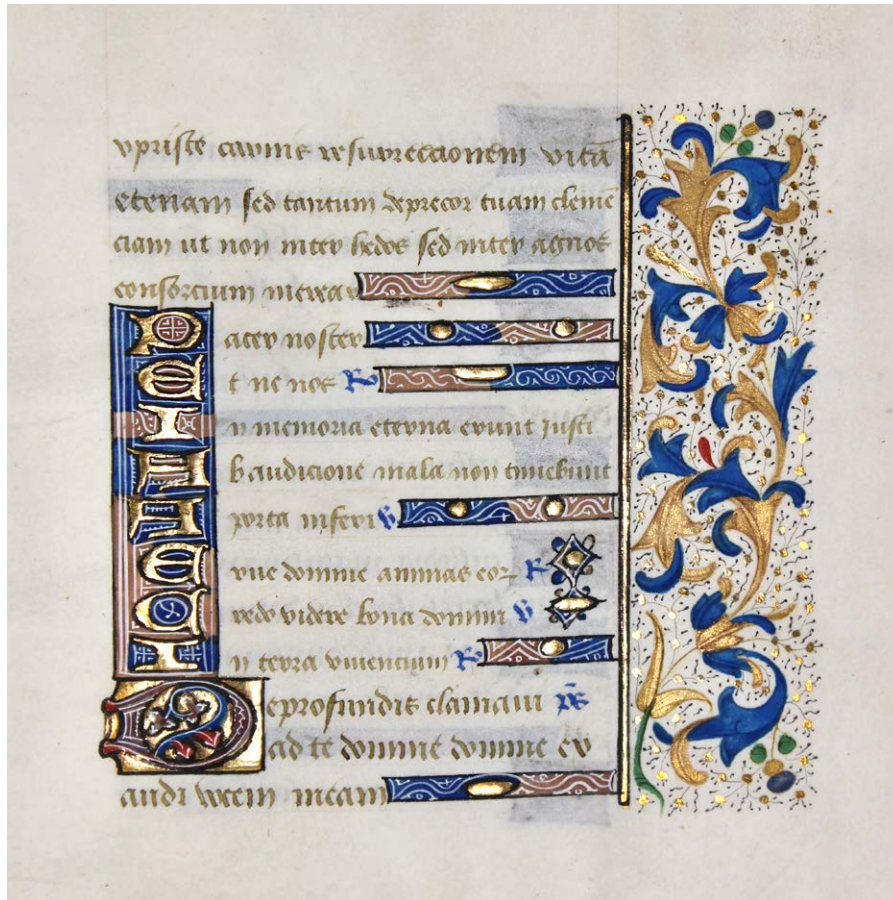 xpriste carnis resurrectionem vitā
eternam sed tantum deprecor tuam clemē
ciam ut non inter hedos sed inter agnos
consorcium merear
Pater noster
Et ne nos R
In memoria eterna erunt justi
Ab audicione mala non timebunt
A porta inferi V
Erue domine animas eor R
Credo videre bona domini V
In terra viventium R
De profundis clamavi p̄s
ad te domine domine ex
audi vocem meam